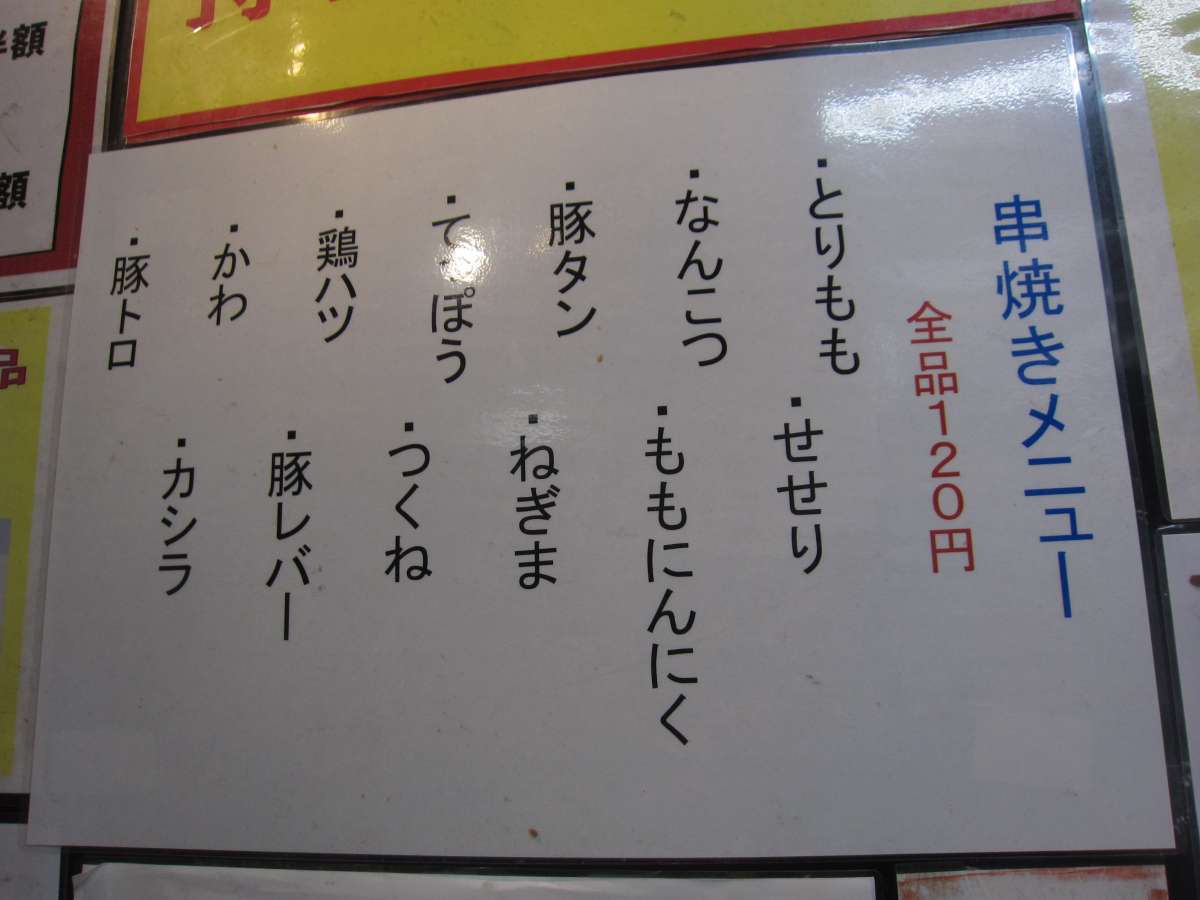 串焼きメニュー
全品120円
・とりもも
・せせり
・なんこつ
・ももにんにく
・豚タン
・ねぎま
・てっぽう
・つくね
・鶏ハツ
・豚レバー
・かわ
・カシラ
・豚トロ
半額
額
品